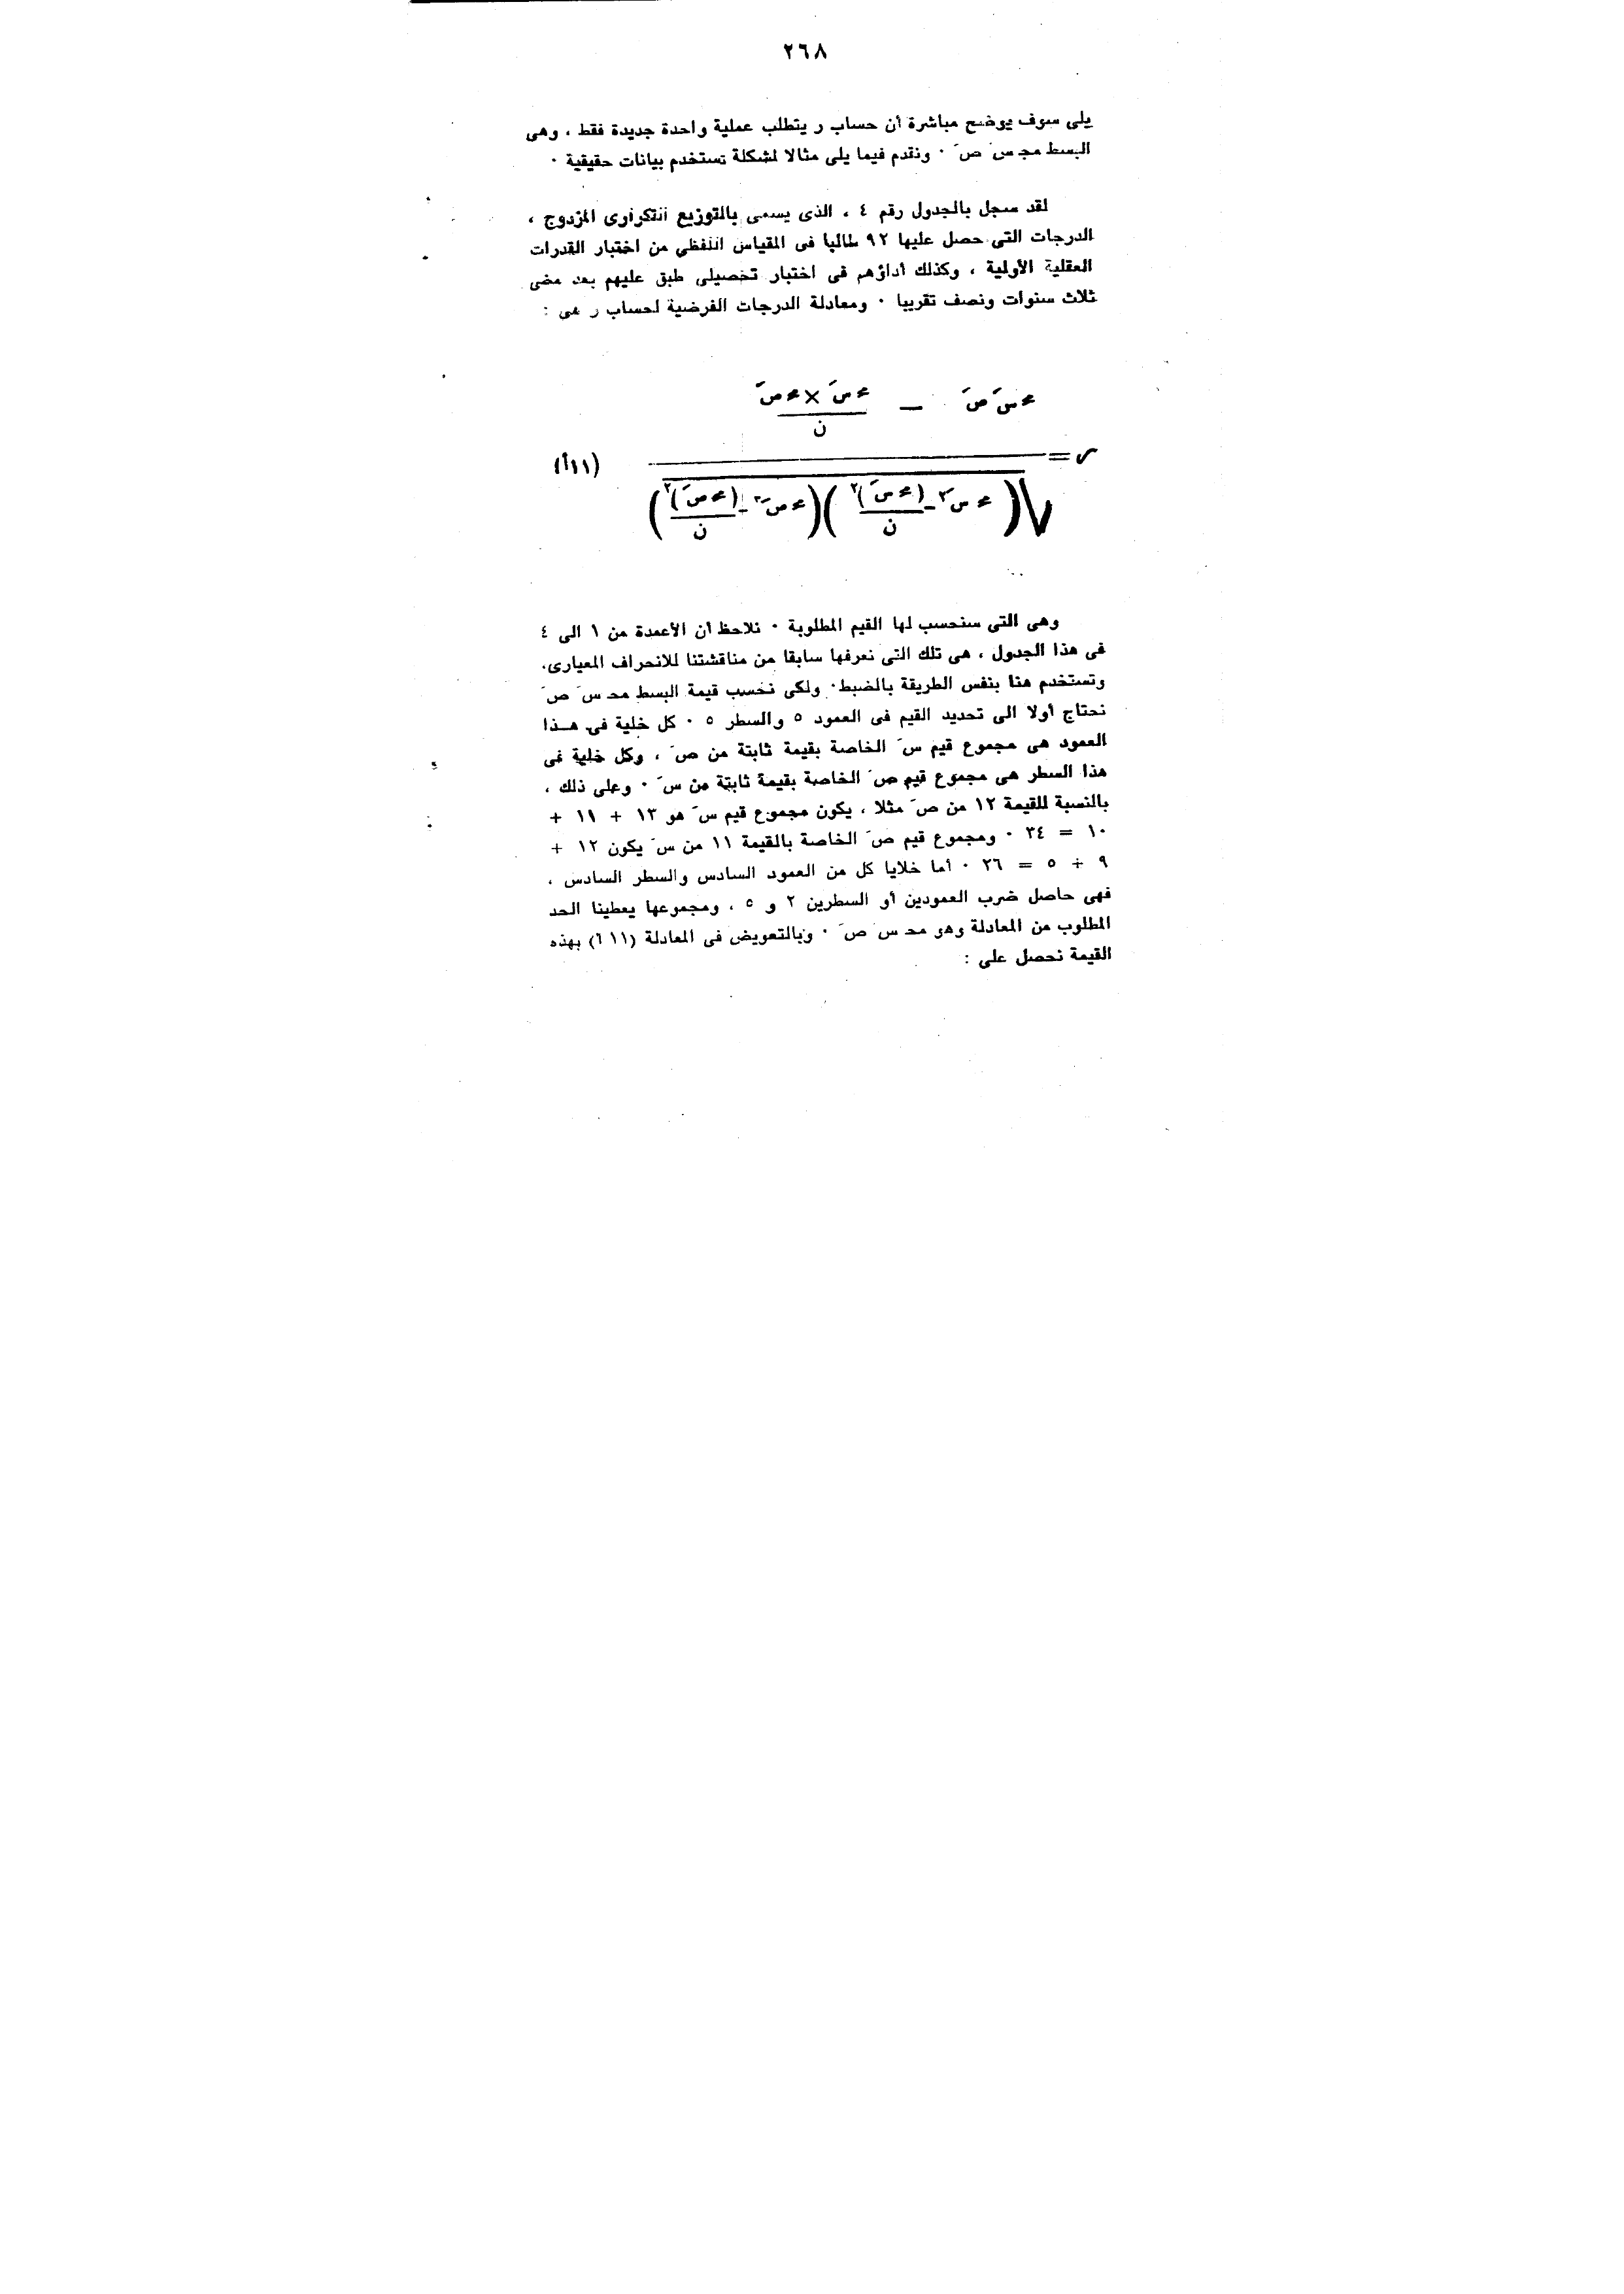 ٢٦٨
يلى سوف يوضح مباشرة أن حساب ر يتطلب عملية واحدة جديدة فقط ، وهى
البسط مجـ سَ صَ ٠ ونقدم فيما يلى مثالا لمشكلة تستخدم بيانات حقيقية ٠
لقد سجل بالجدول رقم ٤ ، الذى يسمى بالتوزيع التكرارى المزدوج ،
الدرجات التى حصل عليها ٩٢ طالبا فى المقياس اللفظى من اختبار القدرات
العقلية الأولية ، وكذلك أداؤهم فى اختبار تحصيلى طبق عليهم بعد مضى
ثلاث سنوات ونصف تقريبا ٠ ومعادلة الدرجات الفرضية لحساب ر هى :
مجـ سَ صَ − مجـ سَ × مجـ صَ
ن
ر = (١١أ)
√ ( مجـ سَ٢ − (مجـ سَ)٢ ) ( مجـ صَ٢ − (مجـ صَ)٢ )
ن ن
وهى التى سنحسب لها القيم المطلوبة ٠ نلاحظ أن الأعمدة من ١ الى ٤
فى هذا الجدول ، هى تلك التى نعرفها سابقا من مناقشتنا للانحراف المعيارى٠
وتستخدم هنا بنفس الطريقة بالضبط٠ ولكى نحسب قيمة البسط محـ سَ صَ
نحتاج أولا الى تحديد القيم فى العمود ٥ والسطر ٥ ٠ كل خلية فى هـذا
العمود هى مجموع قيم سَ الخاصة بقيمة ثابتة من صَ ، وكل خلية فى
هذا السطر هى مجموع قيم صَ الخاصة بقيمة ثابتة من سَ ٠ وعلى ذلك ،
بالنسبة للقيمة ١٢ من صَ مثلا ، يكون مجموع قيم سَ هو ١٣ + ١١ +
١٠ = ٣٤ ٠ ومجموع قيم صَ الخاصة بالقيمة ١١ من سَ يكون ١٢ +
٩ + ٥ = ٢٦ ٠ أما خلايا كل من العمود السادس والسطر السادس ،
فهى حاصل ضرب العمودين أو السطرين ٢ و ٥ ، ومجموعها يعطينا الحد
المطلوب من المعادلة وهو محـ سَ صَ ٠ وبالتعويض فى المعادلة (١١ ٦) بهذه
القيمة نحصل على :